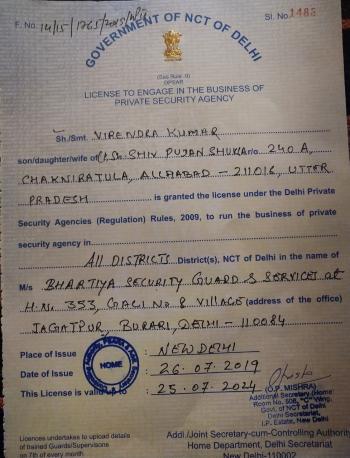 F. No. 14/15/1765/2019/
Sl. No. 1483
GOVERNMENT OF NCT OF DELHI
(See Rule
LICENSE TO ENGAGE IN THE BUSINESS OF
PRIVATE SECURITY AGENCY
Sh./Smt. VIRENDRA KUMAR
son/daughter/wife of Sh. SHIV PUJAN SHUKLA r/o 240 A,
CHAKNIRATULA, ALLAHABAD - 211016, UTTER
PRADESH is granted the license under the Delhi Private
Security Agencies (Regulation) Rules, 2009, to run the business of private
security agency in
All DISTRICTS District(s), NCT of Delhi in the name of
M/s BHARTIYA SECURITY GUARD & SERVICES at
H.N. 353, GALI No 8 VILLAGE (address of the office)
JAGATPUR, BURARI, DELHI - 110084
Place of Issue : NEW DELHI
Date of Issue : 26.07.2019
This License is valid up to : 25.07.2024
HOME
(O.P. MISHRA)
Additional Secretary (Home)
Room No. 508, "C" Wing,
Govt. of NCT of Delhi
Delhi Secretariat,
I.P. Estate, New Delhi
Licences undertakes to upload details
of trained Guards/Supervisors
on 7th of every month
Addl./Joint Secretary-cum-Controlling Authority
Home Department, Delhi Secretariat
New Delhi-110002